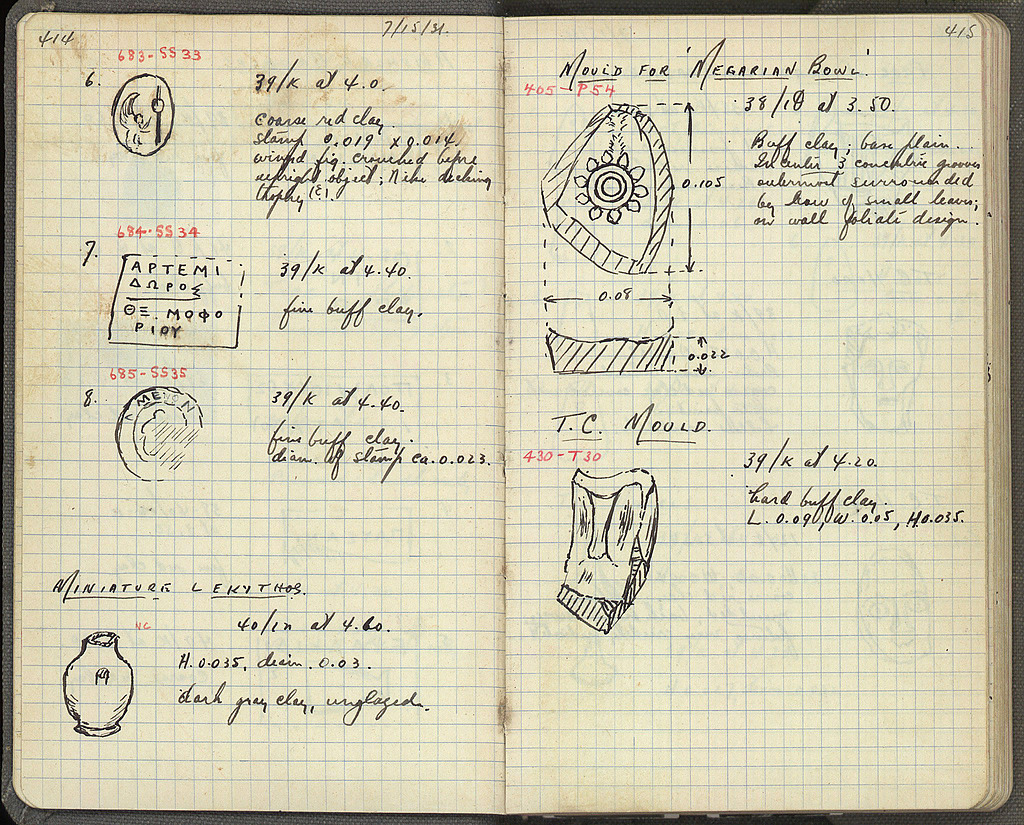 414
7/15/31.
683-SS33
6.
39/K at 4.0.
Coarse red clay.
stamp 0.019 x 0.014.
winged fig. crouched before
upright object; Nike decking
trophy (?).
684-SS34
7.
ΑΡΤΕΜΙ
ΔΩΡΟΣ
ΘΕ.ΜΟΦΟ
ΡΙΟΥ
39/K at 4.40.
fine buff clay.
685-SS35
8.
39/K at 4.40.
fine buff clay.
diam. of stamp ca. 0.023.
MINIATURE LEKYTHOS.
NC
40/ at 4.60.
H. 0.035, diam. 0.03.
dark gray clay, unglazed.
415
MOULD FOR 'MEGARIAN BOWL'.
405-P54
38/ at 3.50.
Buff clay; base plain.
In center 3 concentric grooves
outermost surrounded
by row of small leaves;
on wall foliate design.
0.105
0.08
0.022
T.C. MOULD.
430-T30
39/K at 4.20.
hard buff clay.
L. 0.09, W. 0.05, H. 0.035.